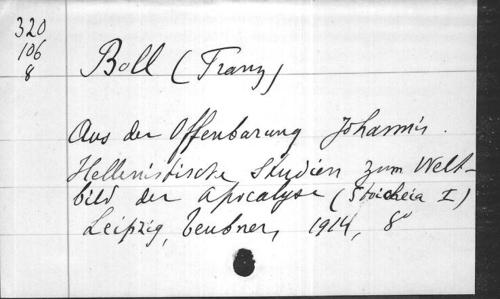 320
106
8
Boll (Franz)
Aus der Offenbarung Johannis.
Hellenistische Studien zum Welt-
bild der Apocalypse (Stoicheia I)
Leipzig, Teubner, 1914, 8°